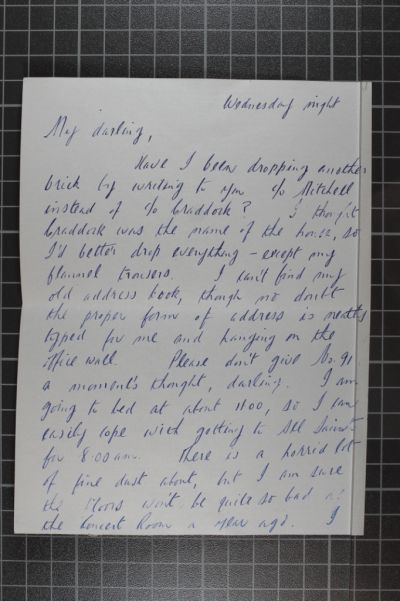 Wednesday night
My darling,
Have I been dropping another
brick by writing to you c/o Mitchell
instead of c/o Craddock? I thought
Craddock was the name of the house, so
I'd better drop everything - except my
flannel trousers. I can't find my
old address book, though no doubt
the proper form of address is neatly
typed for me and hanging on the
office wall. Please don't give No. 91
a moment's thought, darling. I am
going to bed at about 1100, so I can
easily cope with getting to All Saints
for 8.00am. There is a horrid lot
of fine dust about, but I am sure
the floors won't be quite so bad as
the Concert Room a year ago. I